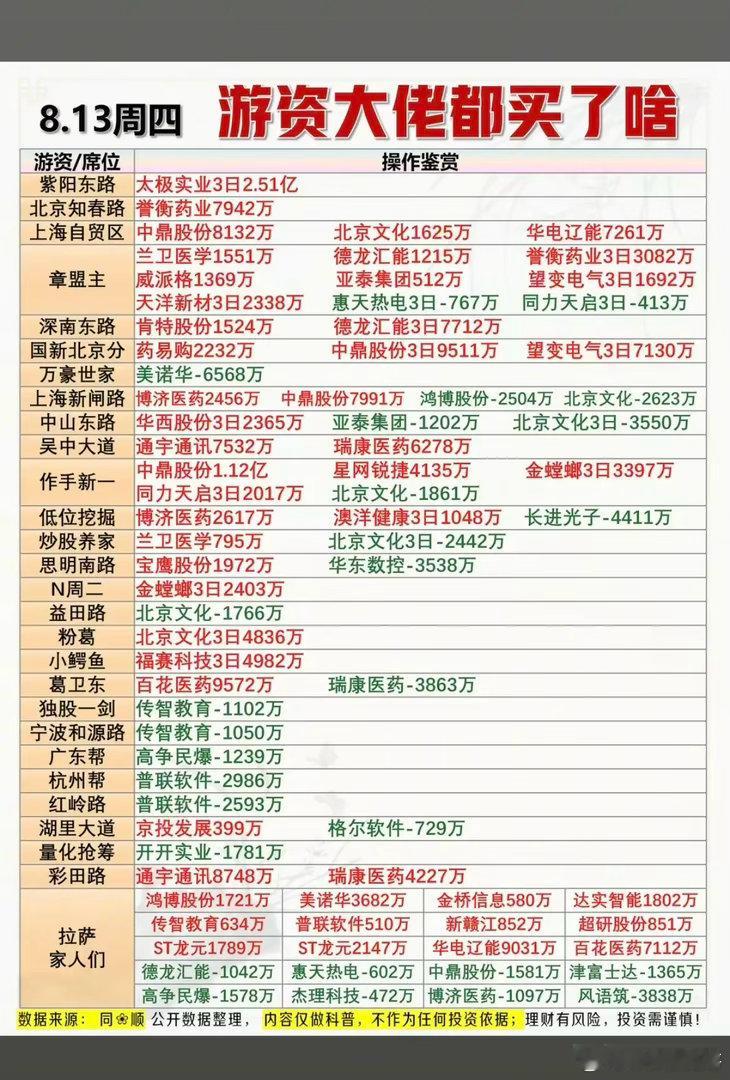 8.13周四 游资大佬都买了啥
游资/席位 操作鉴赏
紫阳东路 太极实业3日2.51亿
北京知春路 誉衡药业7942万
上海自贸区 中鼎股份8132万 北京文化1625万 华电辽能7261万
兰卫医学1551万 德龙汇能1215万 誉衡药业3日3082万
章盟主 威派格1369万 亚泰集团512万 望变电气3日1692万
天洋新材3日2338万 惠天热电3日-767万 同力天启3日-413万
深南东路 肯特股份1524万 德龙汇能3日7712万
国新北京分 药易购2232万 中鼎股份3日9511万 望变电气3日7130万
万豪世家 美诺华-6568万
上海新闸路 博济医药2456万 中鼎股份7991万 鸿博股份-2504万 北京文化-2623万
中山东路 华西股份3日2365万 亚泰集团-1202万 北京文化3日-3550万
吴中大道 通宇通讯7532万 瑞康医药6278万
作手新一 中鼎股份1.12亿 星网锐捷4135万 金螳螂3日3397万
同力天启3日2017万 北京文化-1861万
低位挖掘 博济医药2617万 澳洋健康3日1048万 长进光子-4411万
炒股养家 兰卫医学795万 北京文化3日-2442万
思明南路 宝鹰股份1972万 华东数控-3538万
N周二 金螳螂3日2403万
益田路 北京文化-1766万
粉葛 北京文化3日4836万
小鳄鱼 福赛科技3日4982万
葛卫东 百花医药9572万 瑞康医药-3863万
独股一剑 传智教育-1102万
宁波和源路 传智教育-1050万
广东帮 高争民爆-1239万
杭州帮 普联软件-2986万
红岭路 普联软件-2593万
湖里大道 京投发展399万 格尔软件-729万
量化抢筹 开开实业-1781万
彩田路 通宇通讯8748万 瑞康医药4227万
拉萨家人们 鸿博股份1721万 美诺华3682万 金桥信息580万 达实智能1802万
传智教育634万 普联软件510万 新赣江852万 超研股份851万
ST龙元1789万 ST龙元2147万 华电辽能9031万 百花医药7112万
德龙汇能-1042万 惠天热电-602万 中鼎股份-1581万 津富士达-1365万
高争民爆-1578万 杰理科技-472万 博济医药-1097万 风语筑-3838万
数据来源： 同❀顺 公开数据整理， 内容仅做科普，不作为任何投资依据；理财有风险，投资需谨慎！